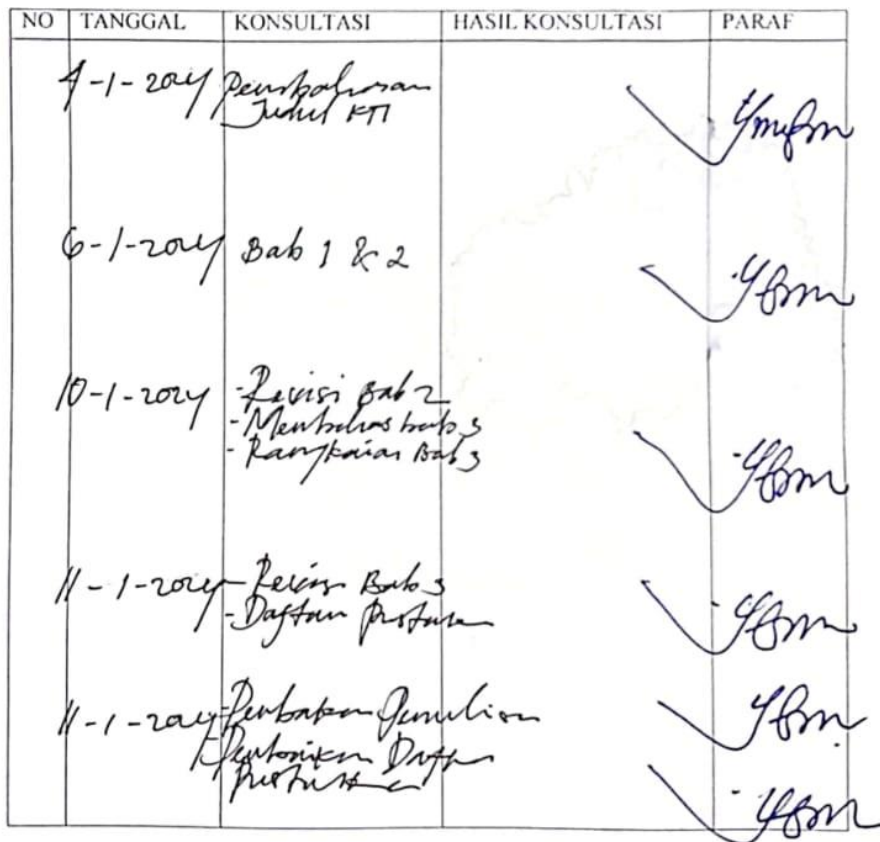 NO TANGGAL KONSULTASI HASIL KONSULTASI PARAF
4-1-2024 Pembahasan
Judul KTI
6-1-2024 Bab 1 & 2
10-1-2024 - Revisi Bab 2
- Membahas bab 3
- Rangkaian Bab 3
11-1-2024 - Revisi Bab 3
- Daftar Pustaka
11-1-2024 - Perbaikan Penulisan
- Perbaikan Daftar
Pustaka